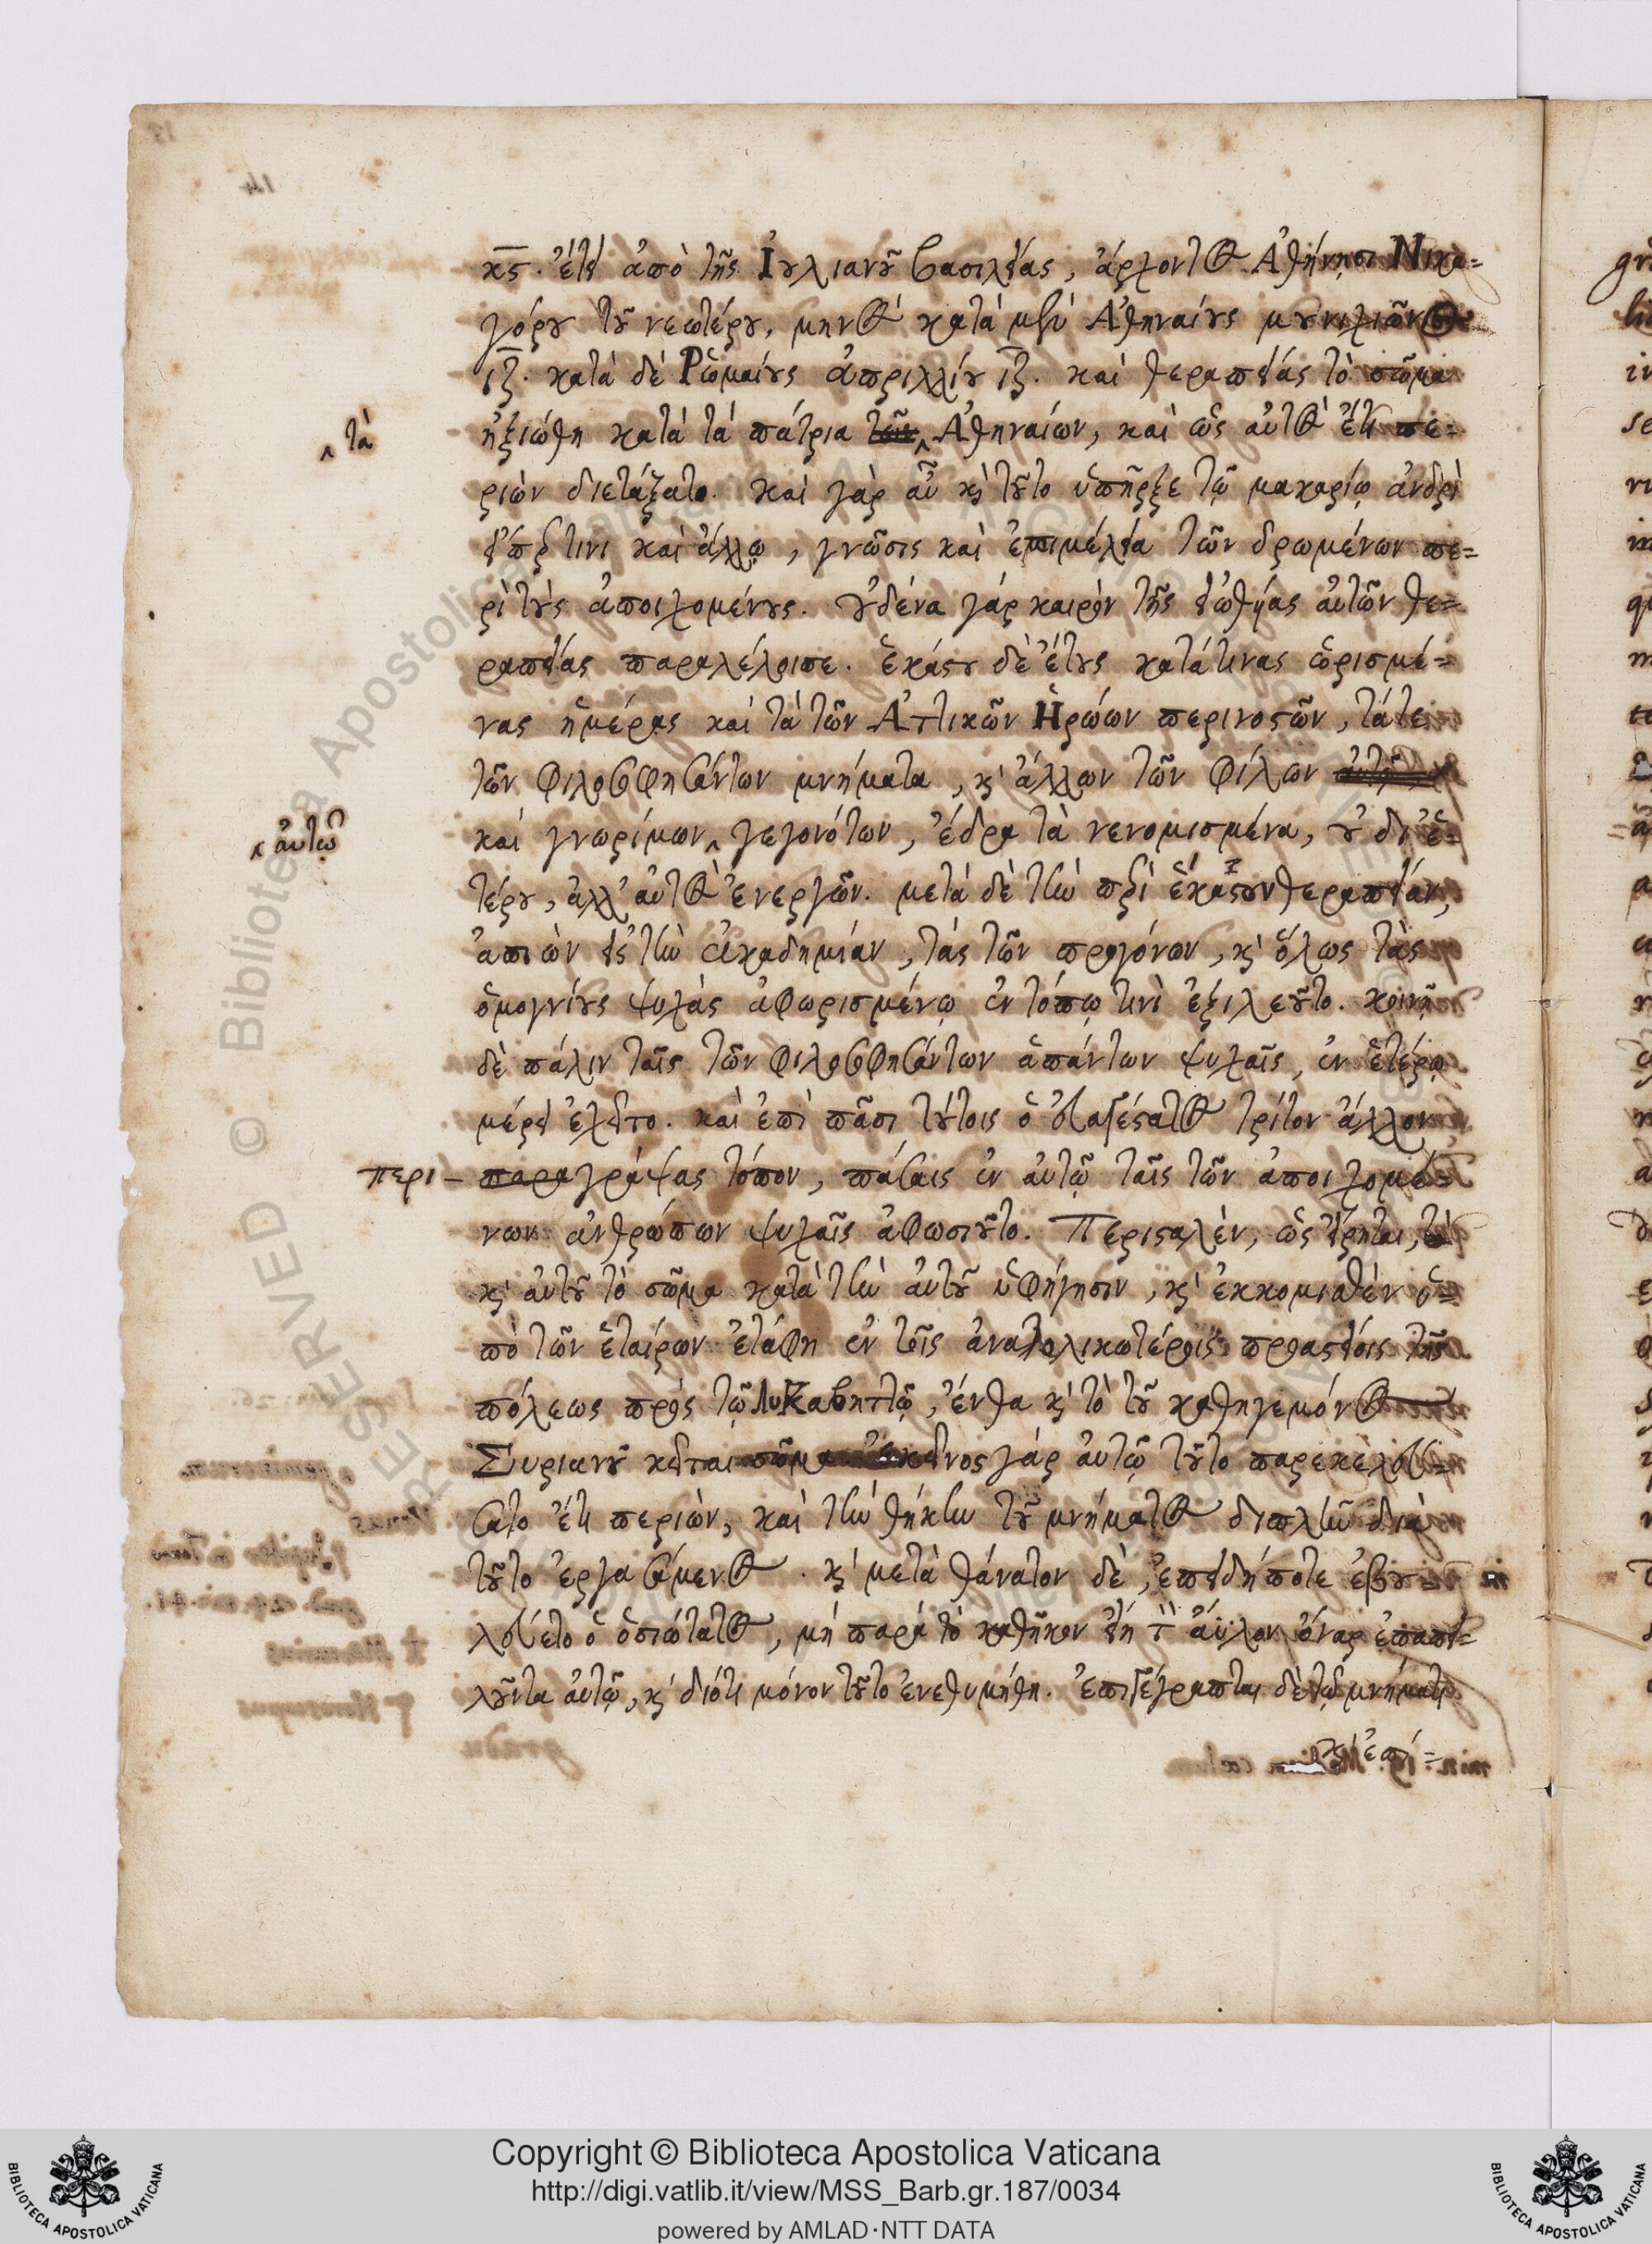 14
κϛ. ἔτει ἀπὸ τῆς Ἰουλιανοῦ βασιλείας, ἄρχοντος Ἀθήνησι Νικα=
γόρου τοῦ νεωτέρου, μηνὸς κατὰ μὲν Ἀθηναίους μουνυχιῶνος
ιζ. κατὰ δὲ Ῥωμαίους ἀπριλλίου ιζ. καὶ θεραπείας τὸ σῶμα
‸ τὰ
ἠξιώθη κατὰ τὰ πάτρια τῶν ‸ Ἀθηναίων, καὶ ὡς αὐτὸς ἔτι πε=
ριὼν διετάξατο. καὶ γὰρ αὖ κỳ τοῦτο ὑπῆρξε τῷ μακαρίῳ ἀνδρὶ
εἴπερ τινι καὶ ἄλλῳ, γνῶσις καὶ ἐπιμέλεια τῶν δρωμένων πε=
ρὶ τοὺς ἀποιχομένους. οὐδένα γὰρ καιρὸν τῆς εἰωθυίας αὐτῶν θε=
ραπείας παραλέλοιπε. ἑκάστου δὲ ἔτους κατά τινας ὡρισμέ=
νας ἡμέρας καὶ τὰ τῶν Ἀττικῶν Ἡρώων περινοστῶν, τά τε
τῶν φιλοσοφησάντων μνήματα, κỳ ἄλλων τῶν φίλων αὐτῷ
‸ αὐτῷ
καὶ γνωρίμων ‸ γεγονότων, ἔδρα τὰ νενομισμένα, οὐ δι' ἑ=
τέρου, ἀλλ' αὐτὸς ἐνεργῶν. μετὰ δὲ τὴν περὶ ἕκαστον θεραπείαν,
ἀπιὼν εἰς τὴν ἀκαδημίαν, τὰς τῶν προγόνων, κỳ ὅλως τὰς
ὁμογνίους ψυχὰς ἀφωρισμένῳ ἐν τόπῳ τινὶ ἐξιλεοῦτο. κοινῇ
δὲ πάλιν ταῖς τῶν φιλοσοφησάντων ἁπάντων ψυχαῖς, ἐν ἑτέρῳ
μέρει ἐχεῖτο. καὶ ἐπὶ πᾶσι τούτοις ὁ εὐαγέστατος τρίτον ἄλλον
περι - παραγράψας τόπον, πάσαις ἐν αὐτῷ ταῖς τῶν ἀποιχομέ=
νων ἀνθρώπων ψυχαῖς ἀφωσιοῦτο. Περισταλὲν, ὡς εἴρηται,
κỳ αὐτοῦ τὸ σῶμα κατὰ τὴν αὐτοῦ ὑφήγησιν, κỳ ἐκκομισθὲν ὑ=
πὸ τῶν ἑταίρων ἐτάφη ἐν τοῖς ἀνατολικωτέροις προαστείοις τῆς
πόλεως πρὸς τῷ Λυκαβηττῷ, ἔνθα κỳ τὸ τοῦ καθηγεμόνος
Συριανοῦ κεῖται σῶμα ἐκεῖνος γὰρ αὐτῷ τοῦτο παρεκελεύ=
σατο ἔτι περιὼν, καὶ τὴν θήκην τοῦ μνήματος διπλῆν διὰ
τοῦτο ἐργασάμενος. κỳ μετὰ θάνατον δὲ, ἐπειδή ποτε ἐβου=
λεύετο ὁ ὁσιώτατος, μὴ παρὰ τὸ καθῆκον εἴη τ̀ αὖχον ὄναρ ἐπαπει=
λοῦντα αὐτῷ, κỳ διότι μόνον τοῦτο ἐνεθυμήθη. ἐπιγέγραπται δὲ τῷ μνήματι
κỳ ἐπί=
© Biblioteca Apostolica Vaticana
RESERVED
Copyright © Biblioteca Apostolica Vaticana
http://digi.vatlib.it/view/MSS_Barb.gr.187/0034
powered by AMLAD·NTT DATA
BIBLIOTECA APOSTOLICA VATICANA
BIBLIOTECA APOSTOLICA VATICANA